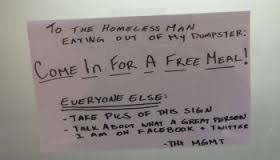 To The Homeless Man
Eating Out Of My Dumpster:
Come In For A Free Meal!
Everyone Else:
- Take Pics Of This Sign
- Talk About What A Great Person
I Am On Facebook + Twitter
- The MGMT